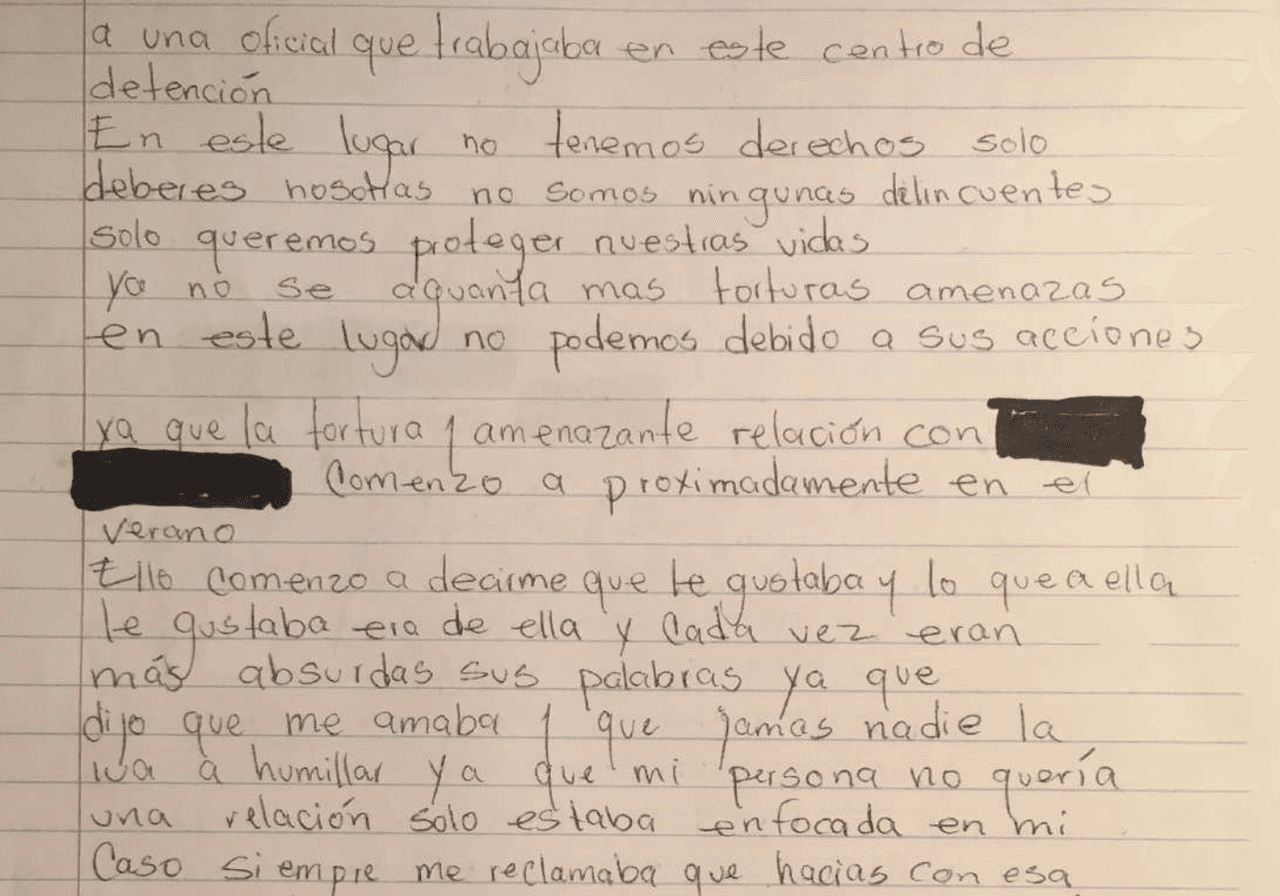 a una oficial que trabajaba en este centro de
detención
En este lugar no tenemos derechos solo
deberes nosotras no somos ningunas delincuentes
solo queremos proteger nuestras vidas
ya no se aguanta mas torturas amenazas
en este lugar no podemos debido a sus acciones
ya que la tortura y amenazante relación con
Comenzo a proximadamente en el
verano
Ella comenzo a decirme que le gustaba y lo que a ella
le gustaba era de ella y cada vez eran
más absurdas sus palabras ya que
dijo que me amaba y que jamas nadie la
iva a humillar ya que mi persona no quería
una relación solo estaba enfocada en mi
Caso siempre me reclamaba que hacias con esa